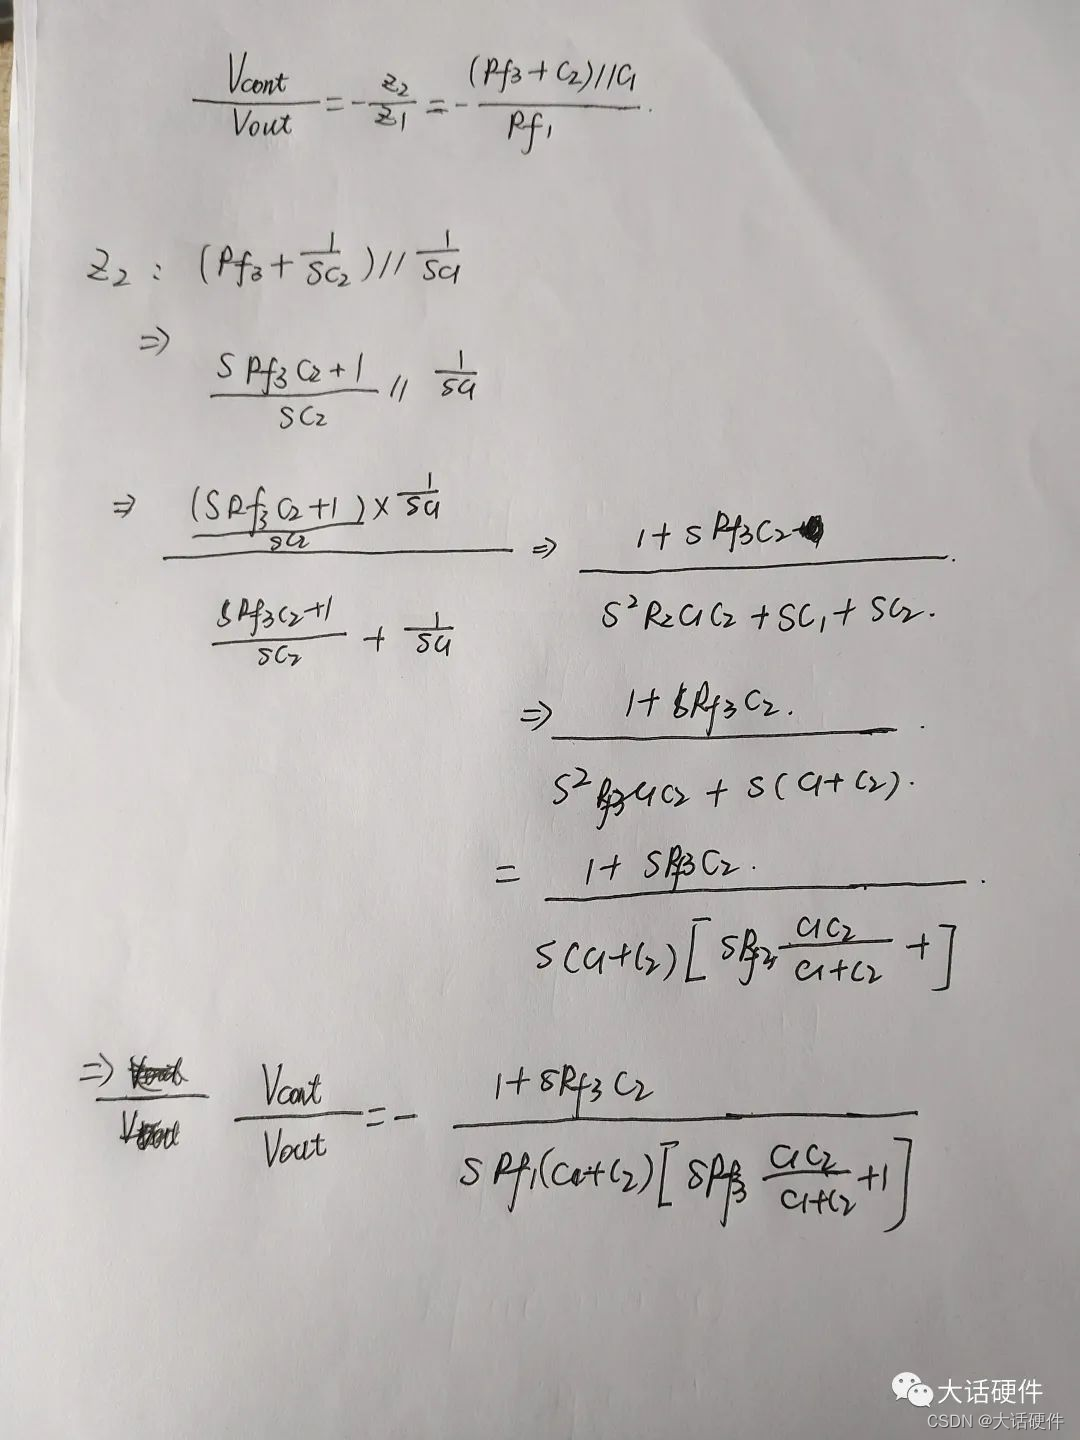 Vcont/Vout = -Z2/Z1 = -(Rf3+C2)//C1/Rf1.
Z2: (Rf3+1/SC2)//1/SC1
⇒ SRf3C2+1/SC2 // 1/SC1
⇒ (SRf3C2+1)/SC2 × 1/SC1 / SRf3C2+1/SC2 + 1/SC1 ⇒ 1+SRf3C2 / S²R2C1C2+SC1+SC2.
⇒ 1+SRf3C2. / S²Rf3C1C2+S(C1+C2).
= 1+SRf3C2. / S(C1+C2)[SRf3 C1C2/C1+C2 +]
⇒ Vcont/Vout = - 1+SRf3C2 / SRf1(C1+C2)[SRf3 C1C2/C1+C2 +1]
大话硬件
CSDN @大话硬件